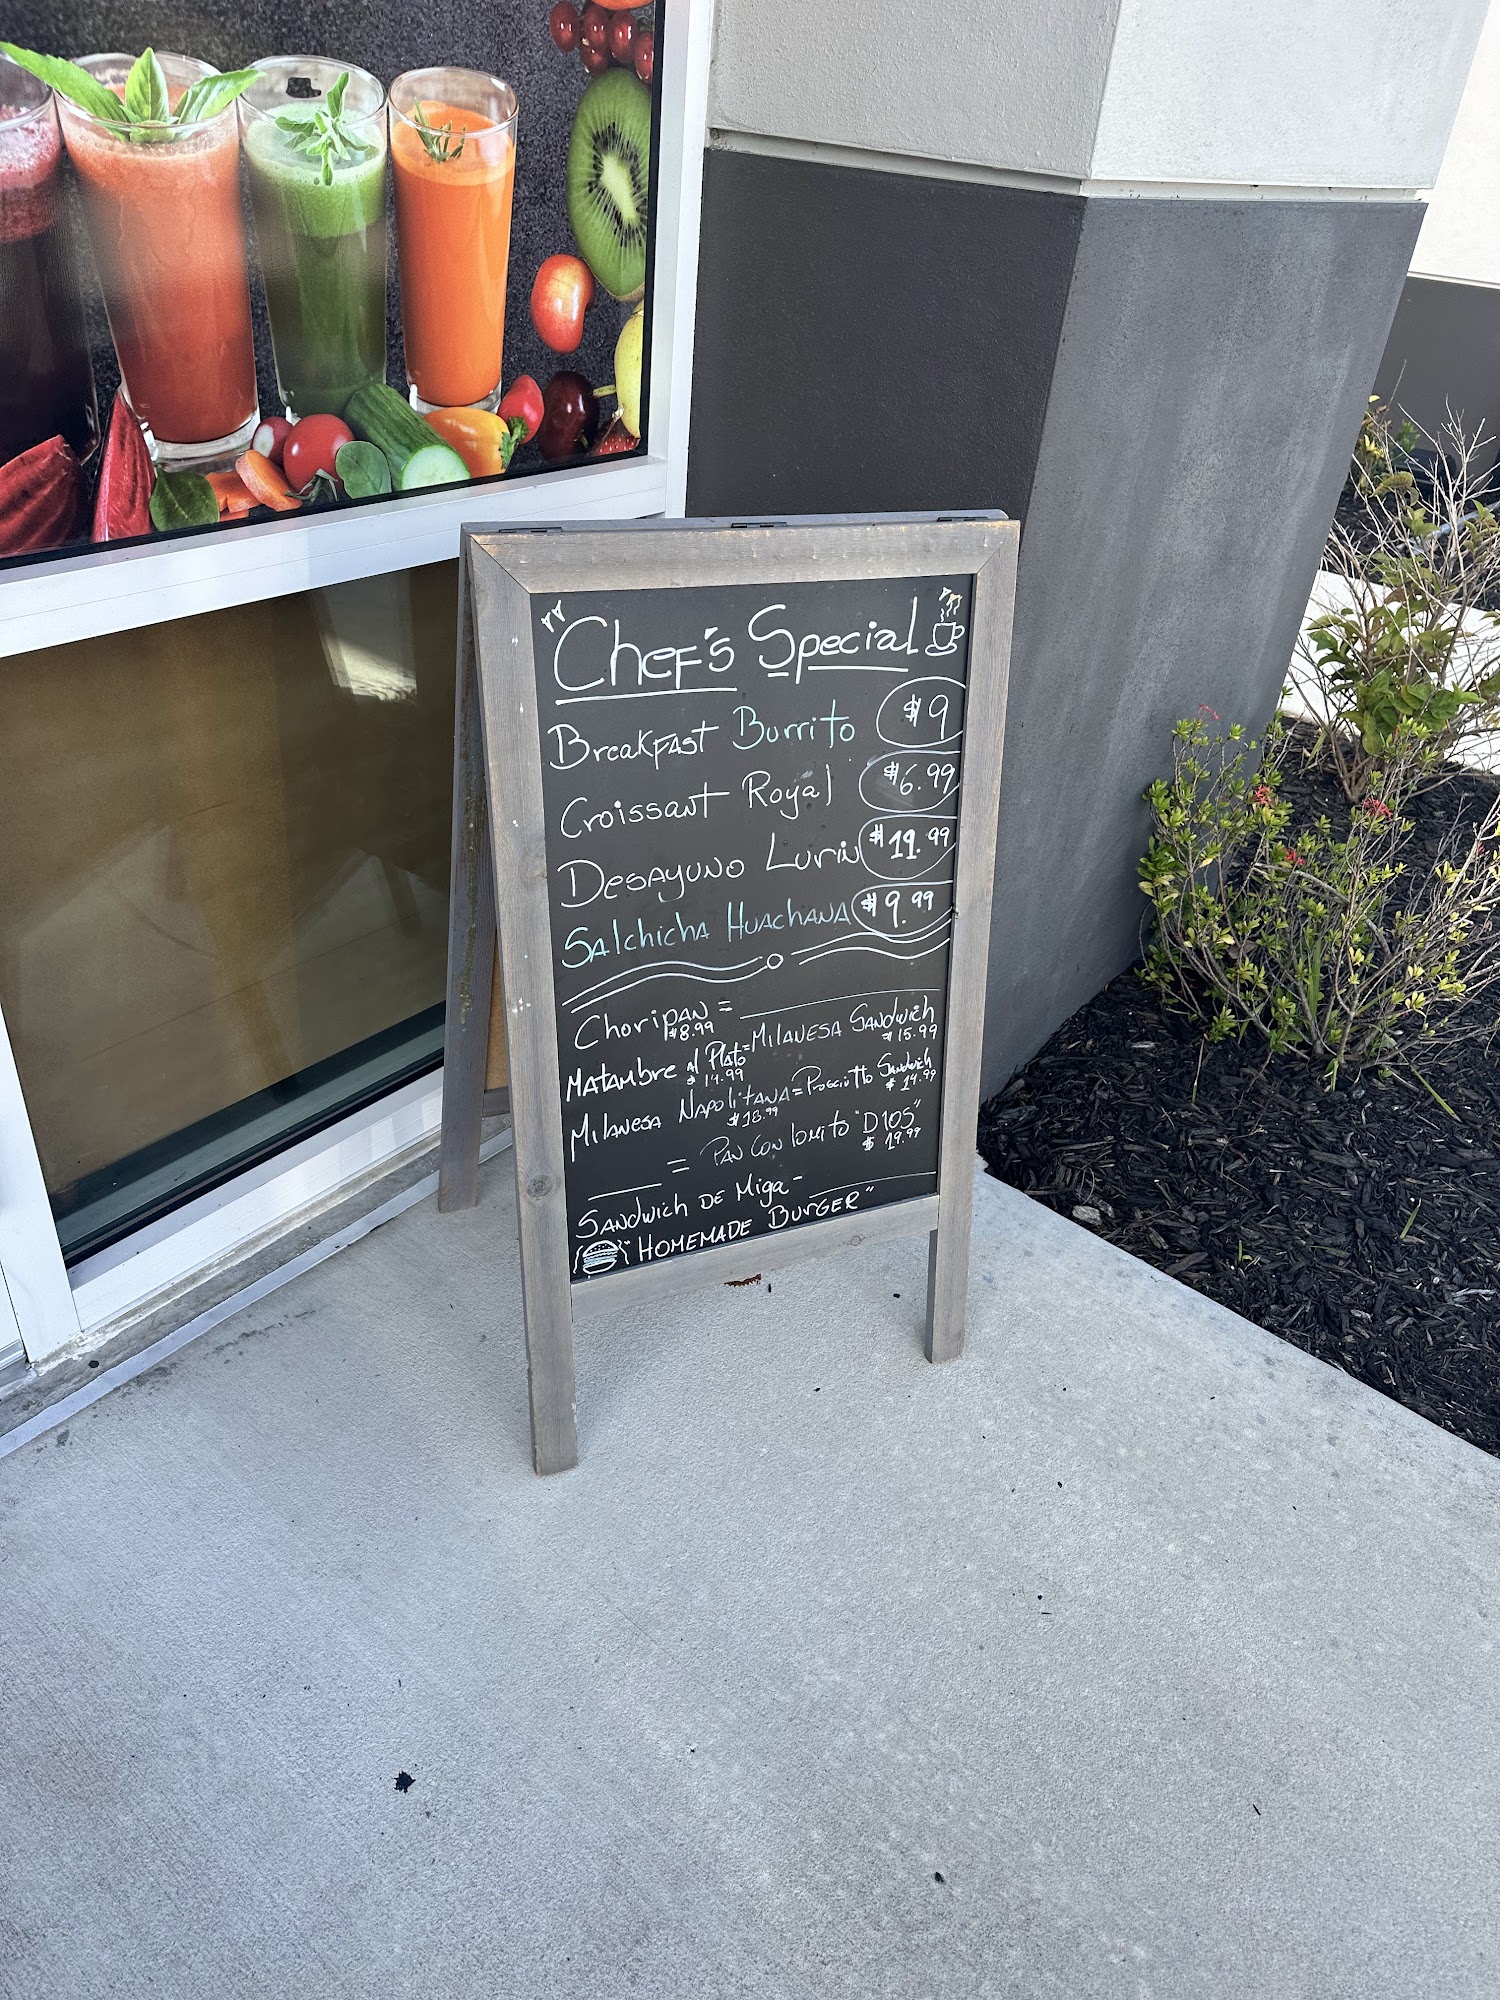 "Chef's Special
Breakfast Burrito $9
Croissant Royal $6.99
Desayuno Lurin $19.99
Salchicha Huachana $9.99
Choripan =
$8.99
Matambre al Plato = Milanesa Sandwich
$15.99
Milanesa Napolitana = Prosciutto Sandwich
$18.99 $14.99
= Pan con lomito "Dios"
$19.99
Sandwich de Miga -
"Homemade Burger"